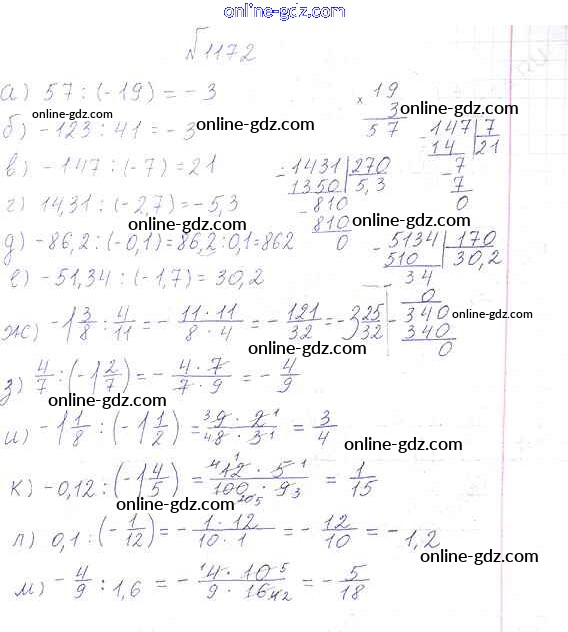 online-gdz.com
№1172
а) 57 : (-19) = -3
× 19
3
57
online-gdz.com
online-gdz.com
б) -123 : 41 = -3
online-gdz.com
-147 | 7
14 | 21
-7
7
0
online-gdz.com
в) -147 : (-7) = 21
-1431 | 270
1350 | 5,3
-810
810
0
г) 14,31 : (-2,7) = -5,3
online-gdz.com
online-gdz.com
д) -86,2 : (-0,1) = 86,2 : 0,1 = 862
-5134 | 170
510 | 30,2
- 34
0
-340
340
0
е) -51,34 : (-1,7) = 30,2
online-gdz.com
ж) -1 3/8 : 4/11 = - 11·11/8·4 = - 121/32 = -3 25/32
online-gdz.com
online-gdz.com
з) 4/7 : (-1 2/7) = - 4·7/7·9 = - 4/9
и) -1 1/8 : (-1 1/2) = 9·2/8·3 = 3/4
online-gdz.com
к) -0,12 : (-1 4/5) = 12·5/100·9 = 1/15
online-gdz.com
online-gdz.com
л) 0,1 : (-1/12) = - 1·12/10·1 = - 12/10 = -1,2
online-gdz.com
м) -4/9 : 1,6 = - 4·10/9·16 = - 5/18
online-gdz.com